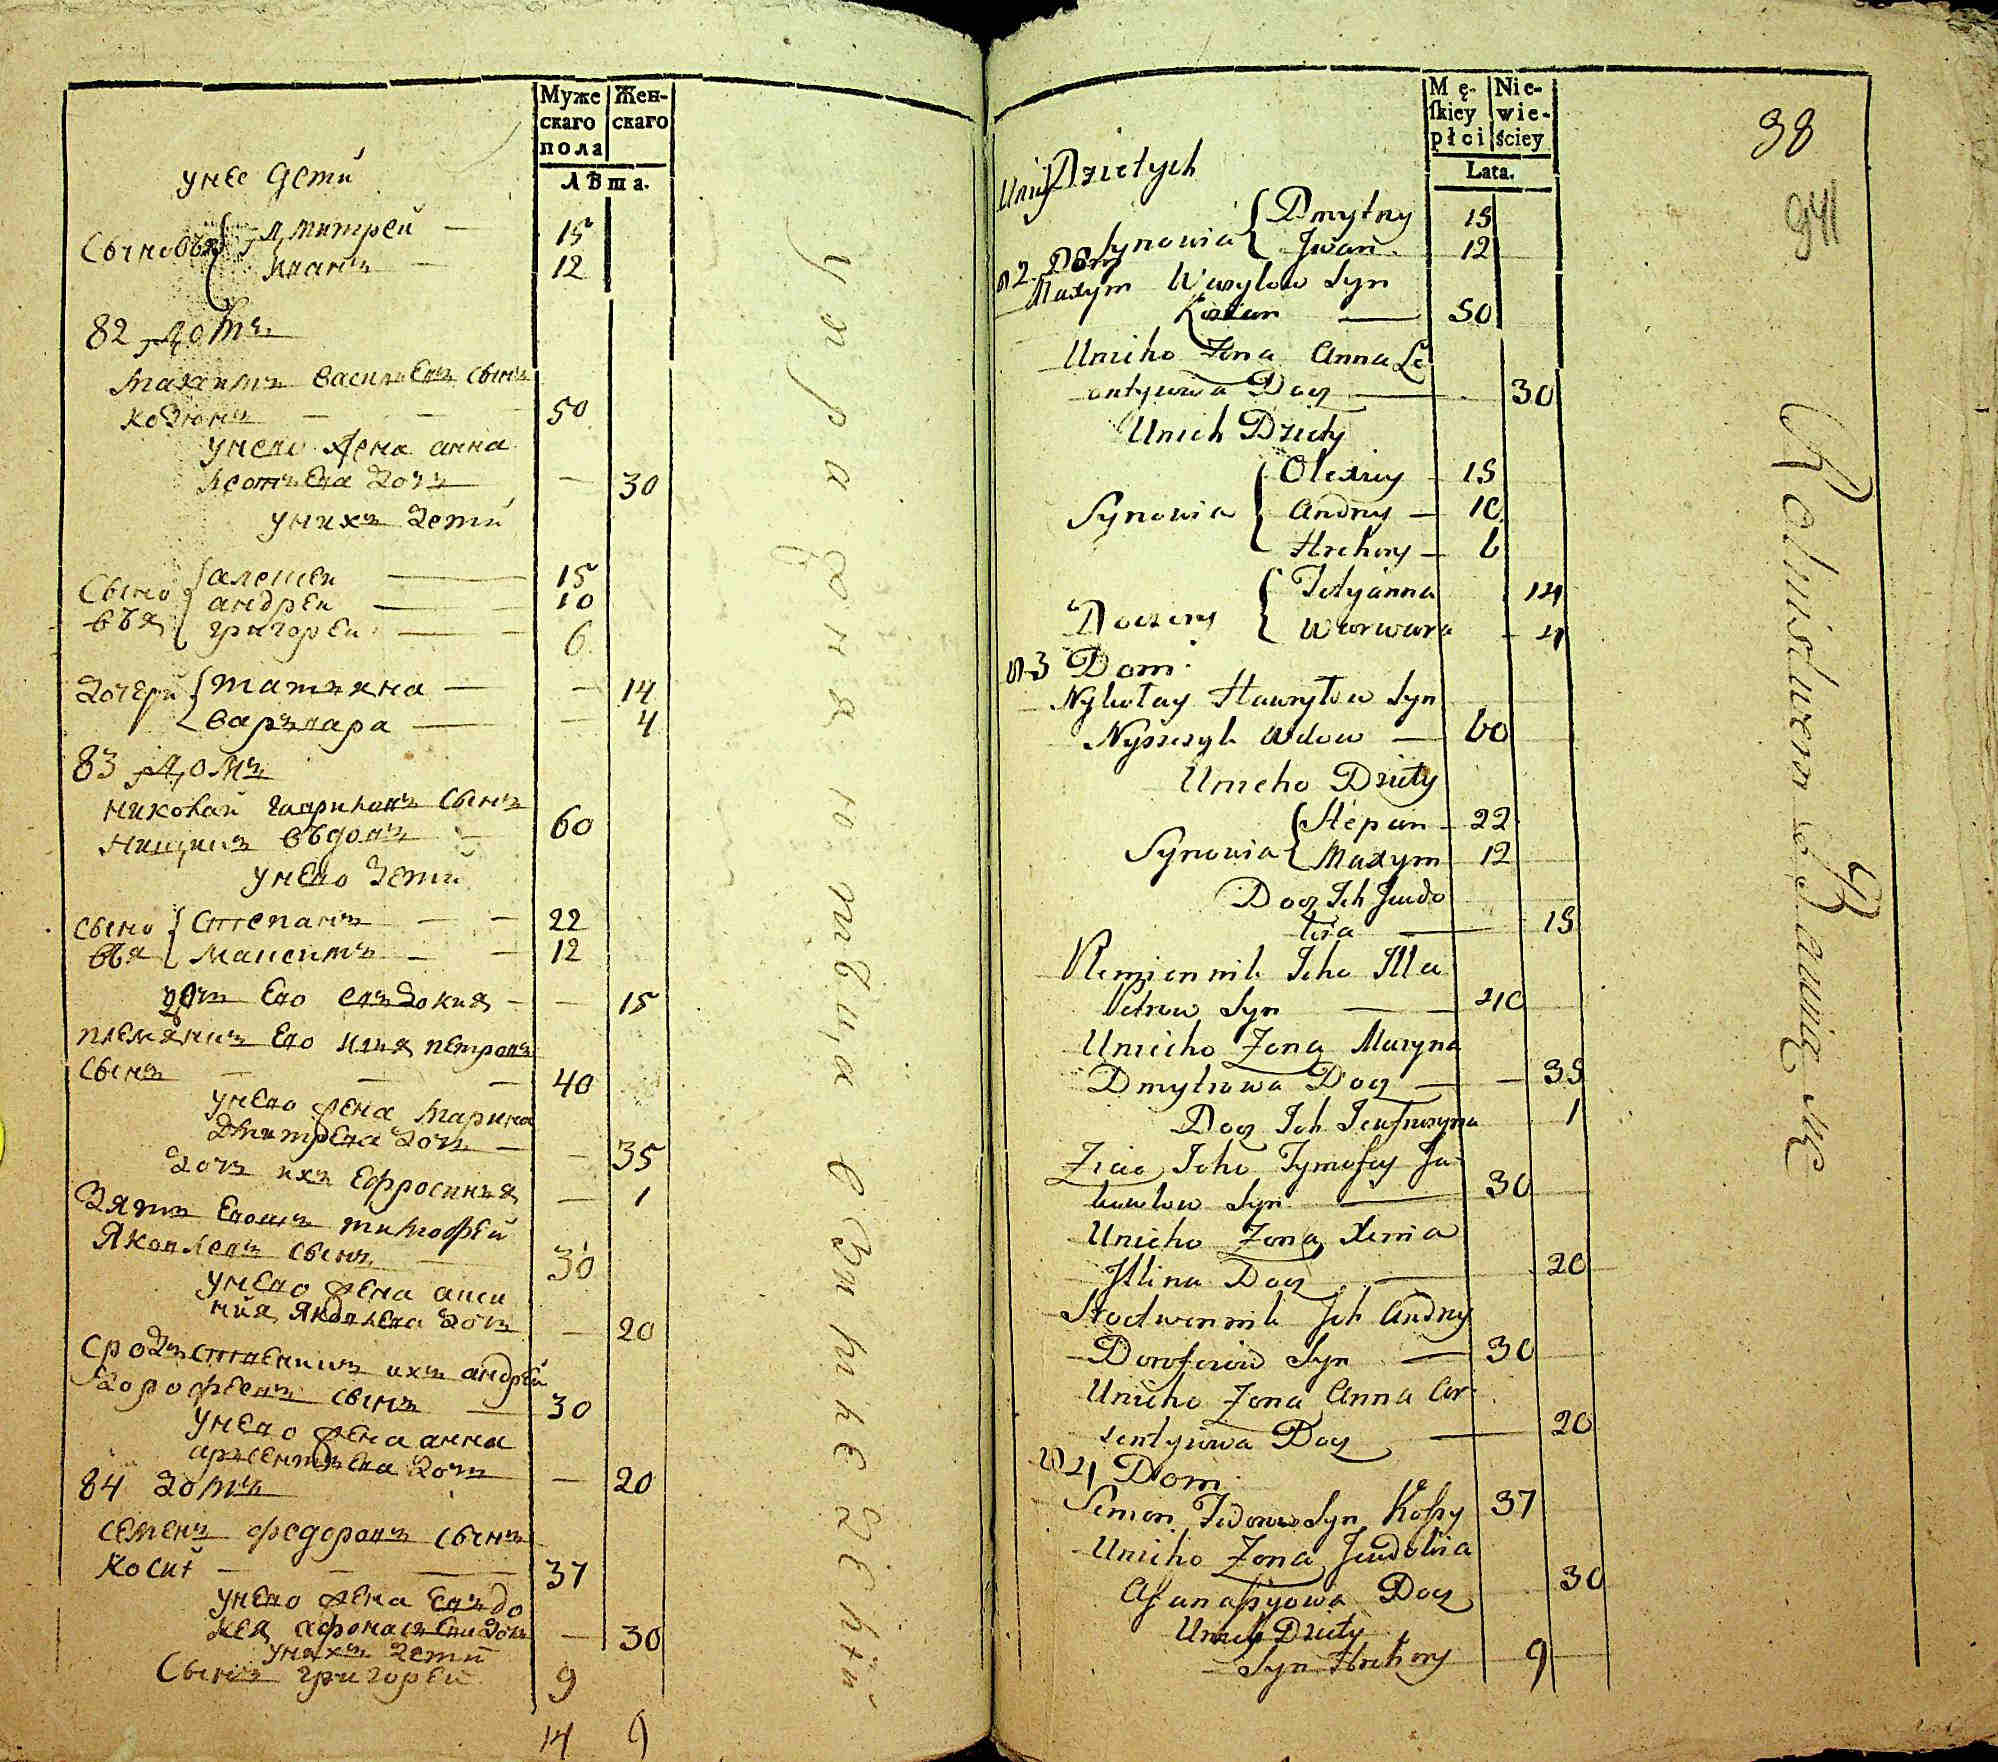 Муже Жен-
скаго скаго
пола
Лѣта.
унее дети
Сыновья Дмитрей — 15
Иванъ — 12
82 домъ
Максимъ Васильевъ сынъ
Козюнъ — 50
унево жена анна
Леотьева дочь — 30
унихъ дети
Сыно алексеи — 15
вья андреи — 10
григореи — 6
дочери татьяна — 14
варъвара — 4
83 домъ
николай гавриловъ сынъ
нищикъ въдовъ 60
унево дети
сыно степанъ — 22
вья максимъ — 12
дочь ево евъдокия — 15
племяникъ ево илия петровъ
сынъ — 40
унево жена марина
дмитрева дочь — 35
дочь ихъ ефросинья — 1
зять евошъ тимофей
яковлевъ сынъ — 30
унево жена акси
ния яковлева дочь — 20
сродъственикъ ихъ андрей
дорофеевъ сынъ — 30
унево жена анна
арьсентьева дочь — 20
84 домъ
семенъ федоровъ сынъ
Косий — 37
унево жена евъдо
кея афонасьева дочь — 30
унихъ дети
Сынъ григорей 9
14 9
Урядника
Mę- Nie-
ſkiey wie-
płci ściey
Lata.
38
Unij Dzietych
Synowia Dmytry 15
Jwan 12
82 Dom
Maxym Wasylow Syn
Koziun — 50
Unieho Zona Anna Le
ontyiowa Docz — 30
Unich Dziety
Olexiey — 15
Synowia Andrey — 10
Hrehory — 6
Doczery Tetyanna 14
Warwara — 4
83 Dom
Nykołay Hawryłow Syn
Nyszczyk Wdow — 60
Unieho Dziety
Stepan — 22
Synowia Maxym — 12
Docz Ich Jewdo
kia — 15
Plemiennik Jeho Illa
Petrow Syn — 40
Unieho Zona Maryna
Dmytrowa Docz — 35
Docz Ich Jeufrosyna 1
Ziac Jeho Tymofey Ja-
kowlow Syn — 30
Unieho Zona Xenia
Illina Docz — 20
Srodwennik Ich Andrey
Dorofeiow Syn — 30
Unieho Zona Anna Ar-
sentyiowa Docz — 20
84 Dom
Semen Fedorow Syn Kosy 37
Unieho Zona Jewdokia
Afanasyiowa Docz 30
Unich Dziety
Syn Hrehory 9